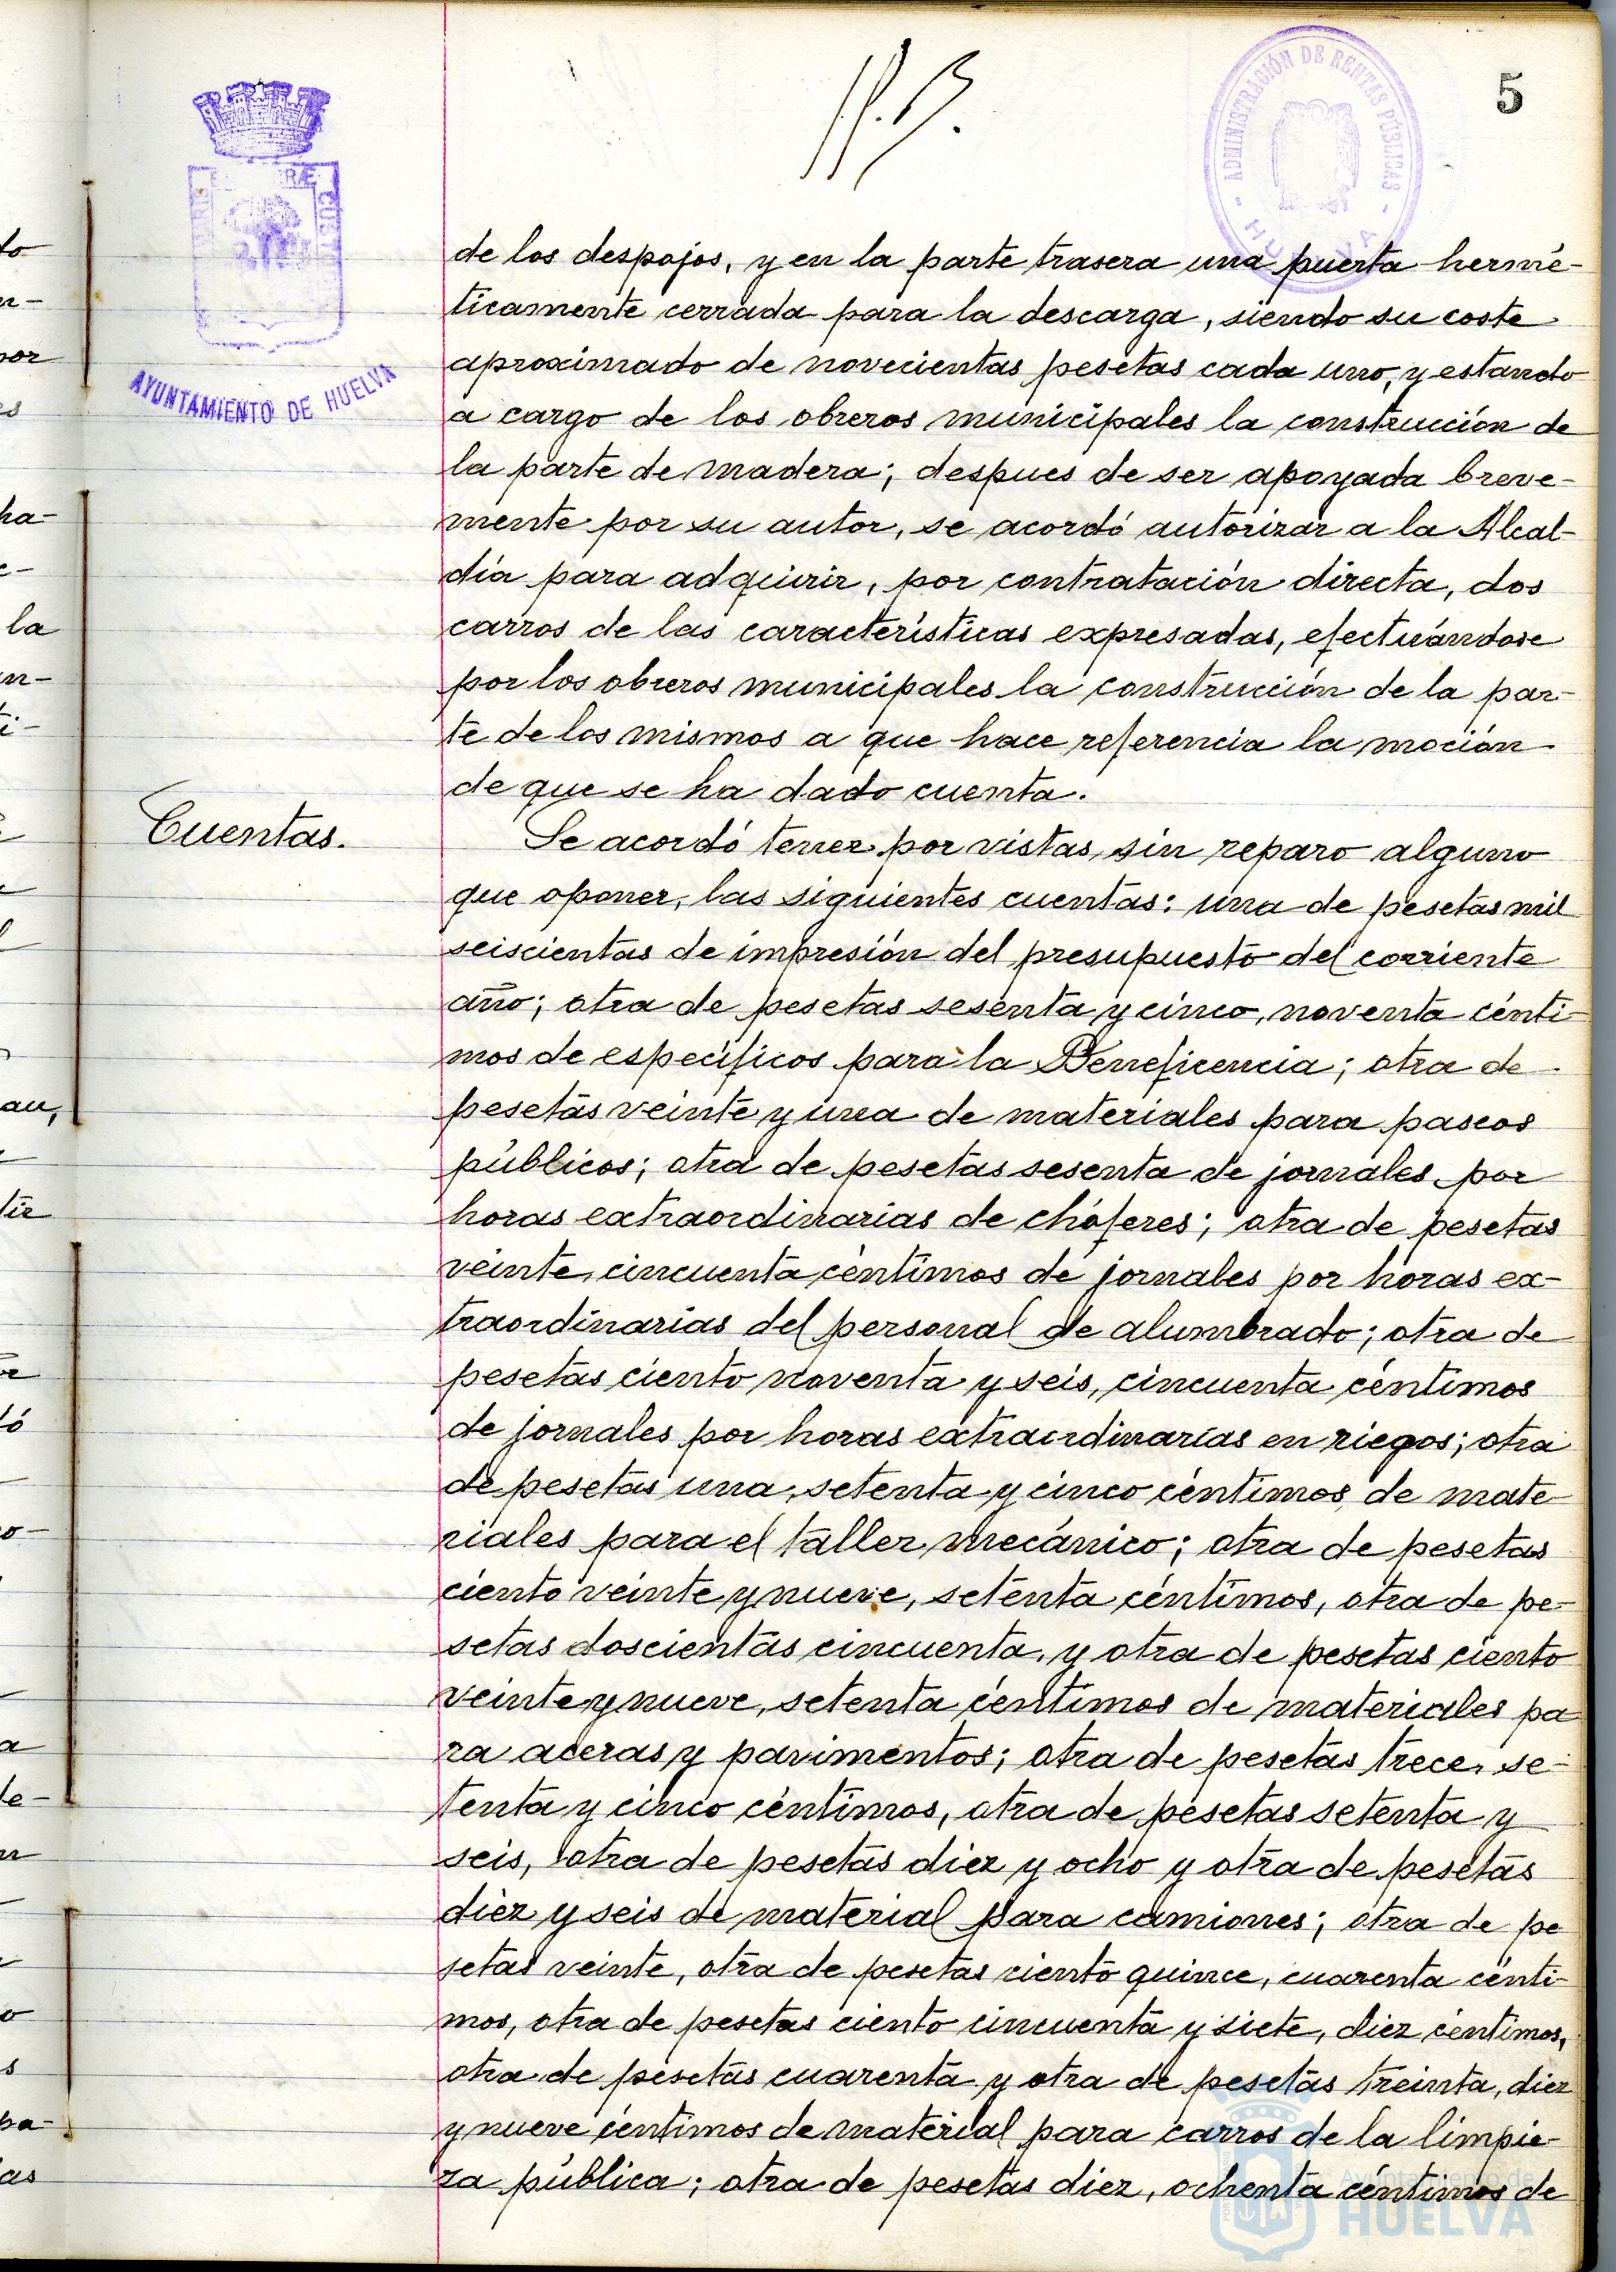 5
ADMINISTRACIÓN DE RENTAS PÚBLICAS
AYUNTAMIENTO DE HUELVA
de los despojos, y en la parte trasera una puerta hermé-
ticamente cerrada para la descarga, siendo su coste
aproximado de novecientas pesetas cada uno, y estando
a cargo de los obreros municipales la construcción de
la parte de madera; despues de ser apoyada breve-
mente por su autor, se acordó autorizar a la Alcal-
día para adquirir, por contratación directa, dos
carros de las características expresadas, efectuándose
por los obreros municipales la construcción de la par-
te de los mismos a que hace referencia la moción
de que se ha dado cuenta.
Cuentas.
Se acordó tener por vistas, sin reparo alguno
que oponer, las siguientes cuentas: una de pesetas mil
seiscientas de impresión del presupuesto del corriente
año; otra de pesetas sesenta y cinco, noventa cénti-
mos de específicos para la Beneficencia; otra de
pesetas veinte y una de materiales para paseos
públicos; otra de pesetas sesenta de jornales por
horas extraordinarias de chóferes; otra de pesetas
veinte, cincuenta céntimos de jornales por horas ex-
traordinarias del personal de alumbrado; otra de
pesetas ciento noventa y seis, cincuenta céntimos
de jornales por horas extraordinarias en riegos; otra
de pesetas una, setenta y cinco céntimos de mate-
riales para el taller mecánico; otra de pesetas
ciento veinte y nueve, setenta céntimos, otra de pe-
setas doscientas cincuenta, y otra de pesetas ciento
veinte y nueve, setenta céntimos de materiales pa
ra aceras y pavimentos; otra de pesetas trece, se-
tenta y cinco céntimos, otra de pesetas setenta y
seis, otra de pesetas diez y ocho y otra de pesetas
diez y seis de material para camiones; otra de pe
setas veinte, otra de pesetas ciento quince, cuarenta cénti-
mos, otra de pesetas ciento cincuenta y siete, diez céntimos,
otra de pesetas cuarenta y otra de pesetas treinta, diez
y nueve céntimos de material para carros de la limpie-
za pública; otra de pesetas diez, ochenta céntimos de
Ayuntamiento de
HUELVA